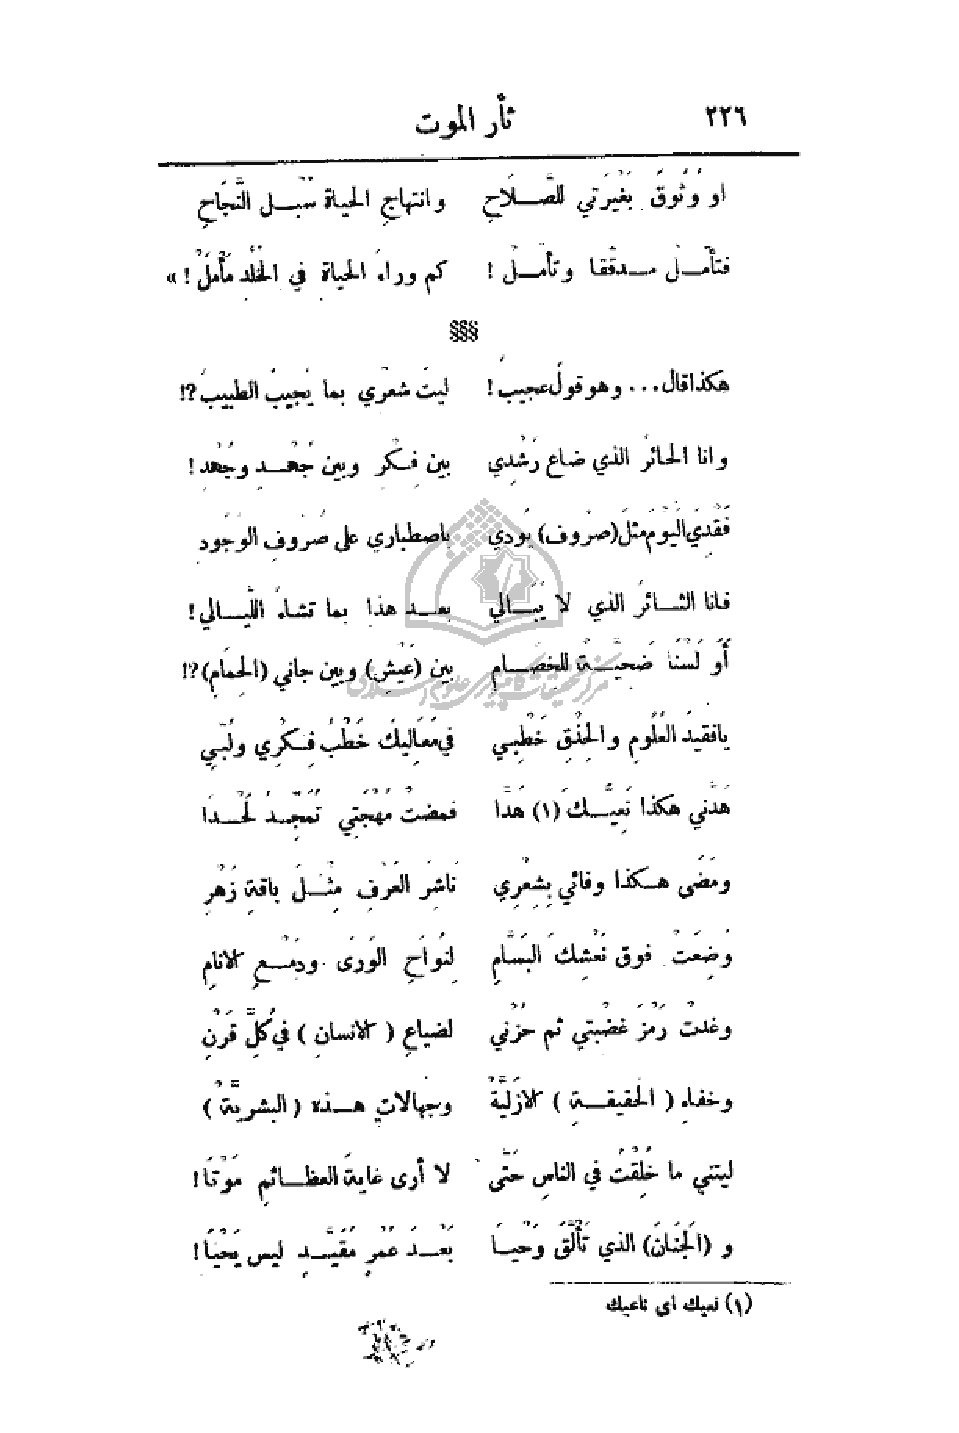 ٢٢٦ ثأر الموت
او وُثُوقَ بَغْيَرَتي للصَّـلَاحِ وانتهاجِ الحياة سُبْـل النَّجَاحِ
فتأمـلْ مـدققا وتأمـلْ ! كم وراءَ الحياة في الخُلْد مَأْمَلْ ! »
§§§
هكذا قال ... وهو قولُ عجيبُ ! ليتَ شعْري بما يُجيبُ الطبيبُ ?!
وانا الحائرُ الذي ضاع رَشْدِي بين فِـكْرٍ وبين جَهْـدٍ وجُهْدِ !
فَقْدِيَ اليَوْمَ مثلَ (صرُوف) يُودي باصطباري على صُرُوفِ الوُجُودِ
فانا الثـائرُ الذي لا يُبَـالي بعـد هذا بما تشاءُ اللَّيـالي !
أَو لَسْنَا ضَحِيَّـةً للخِصَـامِ بين (عَيْشٍ) وبين جاني (الحِمَامِ) ?!
يا فقيدَ العُلُومِ والحِذْقِ خَطْبـي في مَعَالِيكَ خَطْبُ فِـكْرِي ولُبّي
هَدَّني هكذا نَعِيُّـكَ (١) هَدَّا فمضتْ مُهْجَتي تُمَجِّـدُ لَحْـدَا
ومَضَى هـكذا وفائي بِشِعْرِي ناشِرَ العَرْفِ مِثْـلَ باقةِ زَهْرِ
وُضِعَتْ فوق نَعْشِكَ البَسَّامِ لِنُواحِ الوَرَى ودَمْـعِ الانامِ
وغدتْ رَمْزَ غَضْبتي ثم حُزْني لضياعِ ( الانسانِ ) في كُلِّ قَرْنِ
وخفاءِ ( الحقيقـةِ ) الازَلِيَّةْ وجَهالاتِ هـذه ( البشريةْ )
ليتني ما خُلِقْتُ في الناسِ حَتَّى لا أرى غايةَ العظـائمِ مَوْتَا !
و (الجَنَانَ) الذي تَأَلَّقَ وَحْيَـا بَعْـدَ عُمْرٍ مُقَيَّـدٍ ليس يَحْيَا !
(١) نعيك اى ناعيك